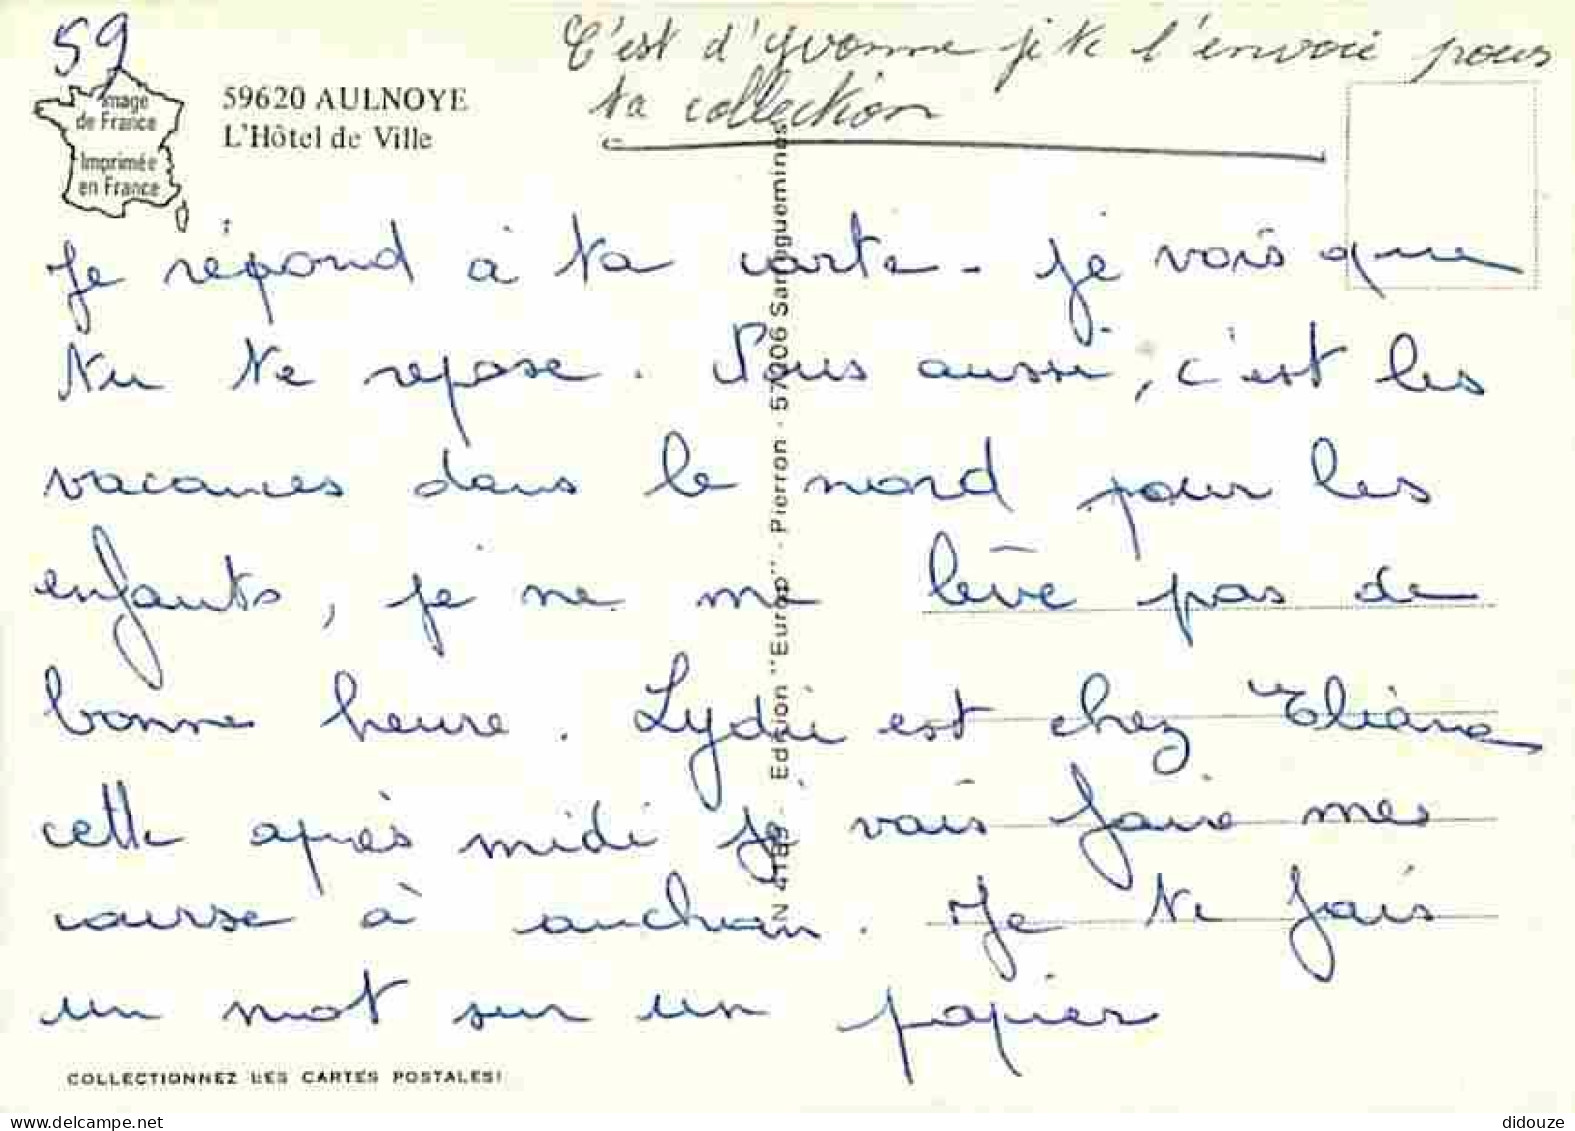 59
C'est d'Yvonne je te l'envoie pour
ta collection
Image
de France
Imprimée
en France
59620 AULNOYE
L'Hôtel de Ville
Je répond à ta carte - je vois que
tu te repose. Nous aussi, c'est les
vacances dans le nord pour les
enfants, je ne me lève pas de
bonne heure. Lydie est chez Eliane
cette après midi je vais faire mes
course à auchan. Je te fais
un mot sur un papier
N 4189 - Edition "Europ" - Pierron - 57206 Sarreguemines
COLLECTIONNEZ LES CARTES POSTALES!
delcampe.net
didouze